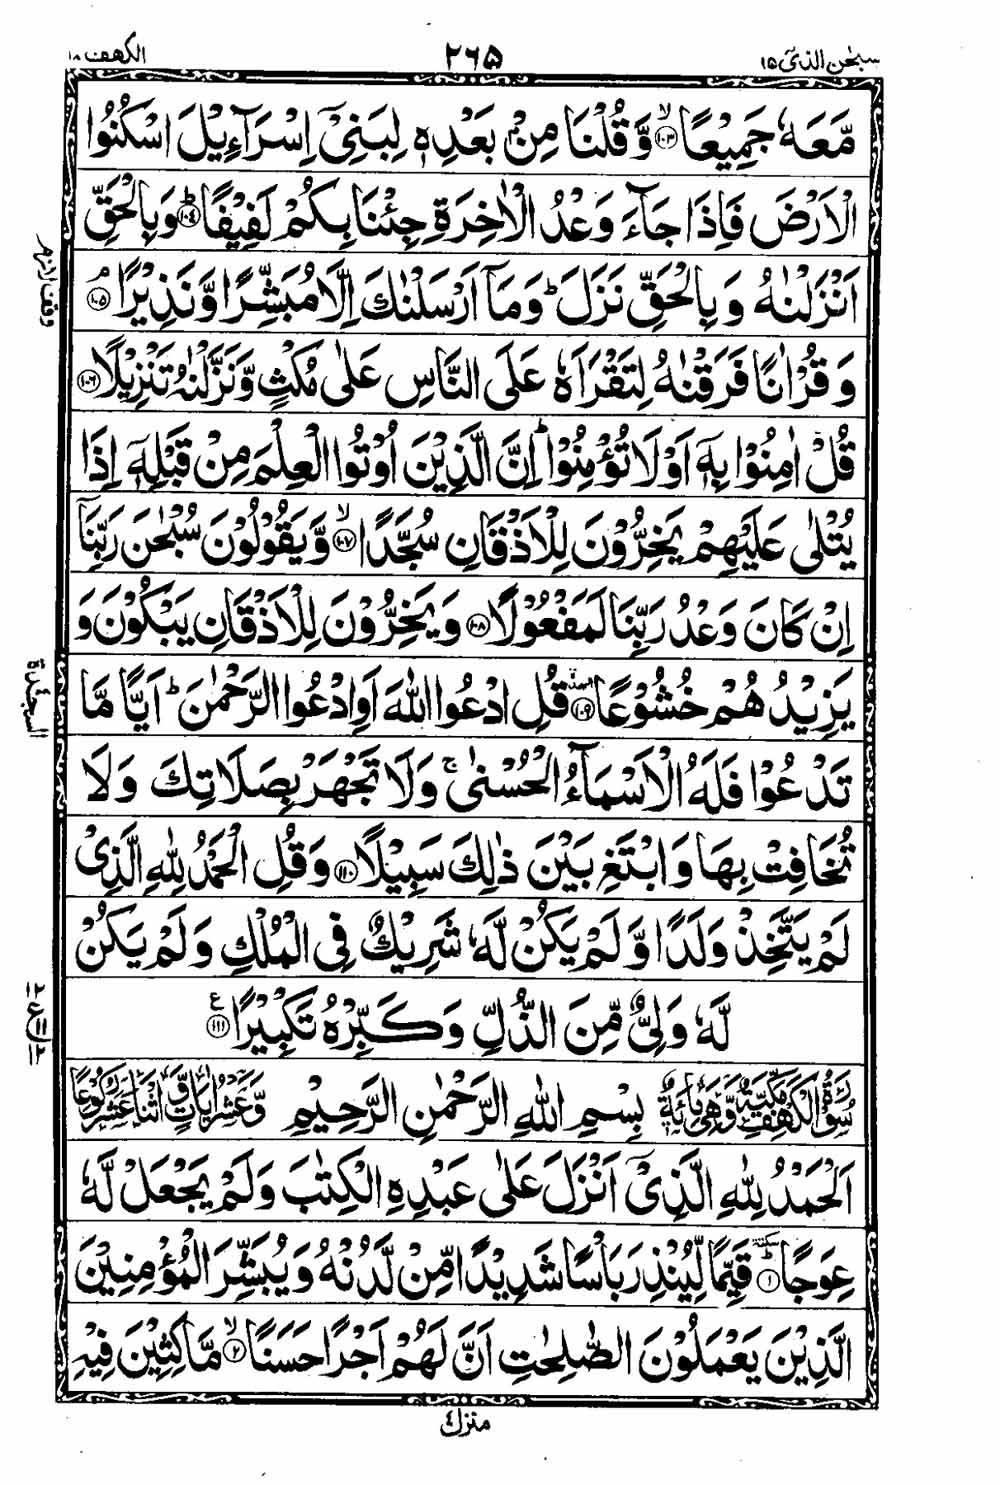 سبحٰن الذیٓ ۱۵ ۲۶۵ الکهف ۱۸
مَّعَهٗ جَمِيْعًا ۙ﴿۱۰۳﴾ وَّقُلْنَا مِنْۢ بَعْدِهٖ لِبَنِىْٓ اِسْرَآءِيْلَ اسْكُنُوا
الْاَرْضَ فَاِذَا جَآءَ وَعْدُ الْاٰخِرَةِ جِئْنَا بِكُمْ لَفِيْفًا ؕ﴿۱۰۴﴾ وَبِالْحَقِّ
اَنْزَلْنٰهُ وَبِالْحَقِّ نَزَلَ ؕ وَمَآ اَرْسَلْنٰكَ اِلَّا مُبَشِّرًا وَّنَذِيْرًا ۘ﴿۱۰۵﴾
وقف لازم
وَقُرْاٰنًا فَرَقْنٰهُ لِتَقْرَاَهٗ عَلَى النَّاسِ عَلٰى مُكْثٍ وَّنَزَّلْنٰهُ تَنْزِيْلًا ﴿۱۰۶﴾
قُلْ اٰمِنُوْا بِهٖٓ اَوْ لَا تُؤْمِنُوْا ؕ اِنَّ الَّذِيْنَ اُوْتُوا الْعِلْمَ مِنْ قَبْلِهٖٓ اِذَا
يُتْلٰى عَلَيْهِمْ يَخِرُّوْنَ لِلْاَذْقَانِ سُجَّدًا ۙ﴿۱۰۷﴾ وَّيَقُوْلُوْنَ سُبْحٰنَ رَبِّنَآ
اِنْ كَانَ وَعْدُ رَبِّنَا لَمَفْعُوْلًا ﴿۱۰۸﴾ وَيَخِرُّوْنَ لِلْاَذْقَانِ يَبْكُوْنَ وَ
يَزِيْدُهُمْ خُشُوْعًا ﴿۱۰۹﴾ السجدة قُلِ ادْعُوا اللّٰهَ اَوِ ادْعُوا الرَّحْمٰنَ ؕ اَيًّا مَّا
السجدة
تَدْعُوْا فَلَهُ الْاَسْمَآءُ الْحُسْنٰى ۚ وَلَا تَجْهَرْ بِصَلَاتِكَ وَلَا
تُخَافِتْ بِهَا وَابْتَغِ بَيْنَ ذٰلِكَ سَبِيْلًا ﴿۱۱۰﴾ وَقُلِ الْحَمْدُ لِلّٰهِ الَّذِىْ
لَمْ يَتَّخِذْ وَلَدًا وَّلَمْ يَكُنْ لَّهٗ شَرِيْكٌ فِى الْمُلْكِ وَلَمْ يَكُنْ
لَّهٗ وَلِىٌّ مِّنَ الذُّلِّ وَكَبِّرْهُ تَكْبِيْرًا ﴿۱۱۱﴾ ع
۱۲ ع ۱۱ ۱۲
سُوْرَةُ الْكَهْفِ مَكِّيَّةٌ وَّهِىَ مِائَةٌ بِسْمِ اللّٰهِ الرَّحْمٰنِ الرَّحِيْمِ وَّعَشْرُ اٰيَاتٍ وَّاثْنَا عَشَرَ رُكُوْعًا
اَلْحَمْدُ لِلّٰهِ الَّذِىْٓ اَنْزَلَ عَلٰى عَبْدِهِ الْكِتٰبَ وَلَمْ يَجْعَلْ لَّهٗ
عِوَجًا ؕ﴿۱﴾ سكتة قَيِّمًا لِّيُنْذِرَ بَاْسًا شَدِيْدًا مِّنْ لَّدُنْهُ وَيُبَشِّرَ الْمُؤْمِنِيْنَ
الَّذِيْنَ يَعْمَلُوْنَ الصّٰلِحٰتِ اَنَّ لَهُمْ اَجْرًا حَسَنًا ۙ﴿۲﴾ مَّاكِثِيْنَ فِيْهِ
منزل ۴